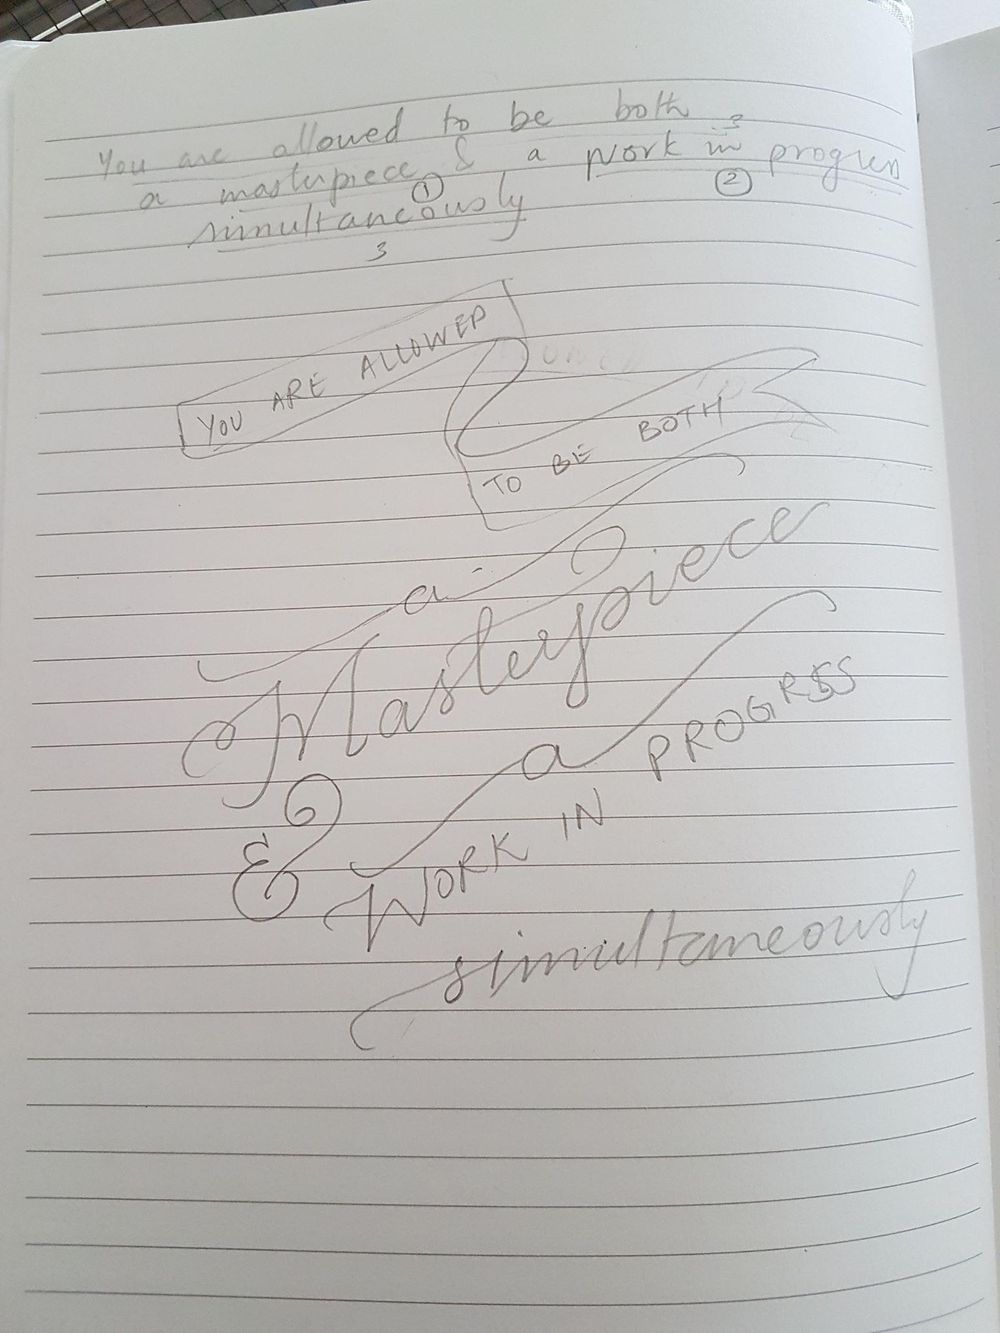 You are allowed to be both
a masterpiece & a work in progress
3
1
2
simultaneously
3
YOU ARE ALLOWED
TO BE BOTH
a
Masterpiece
&
a
WORK IN PROGRSS
simultaneously